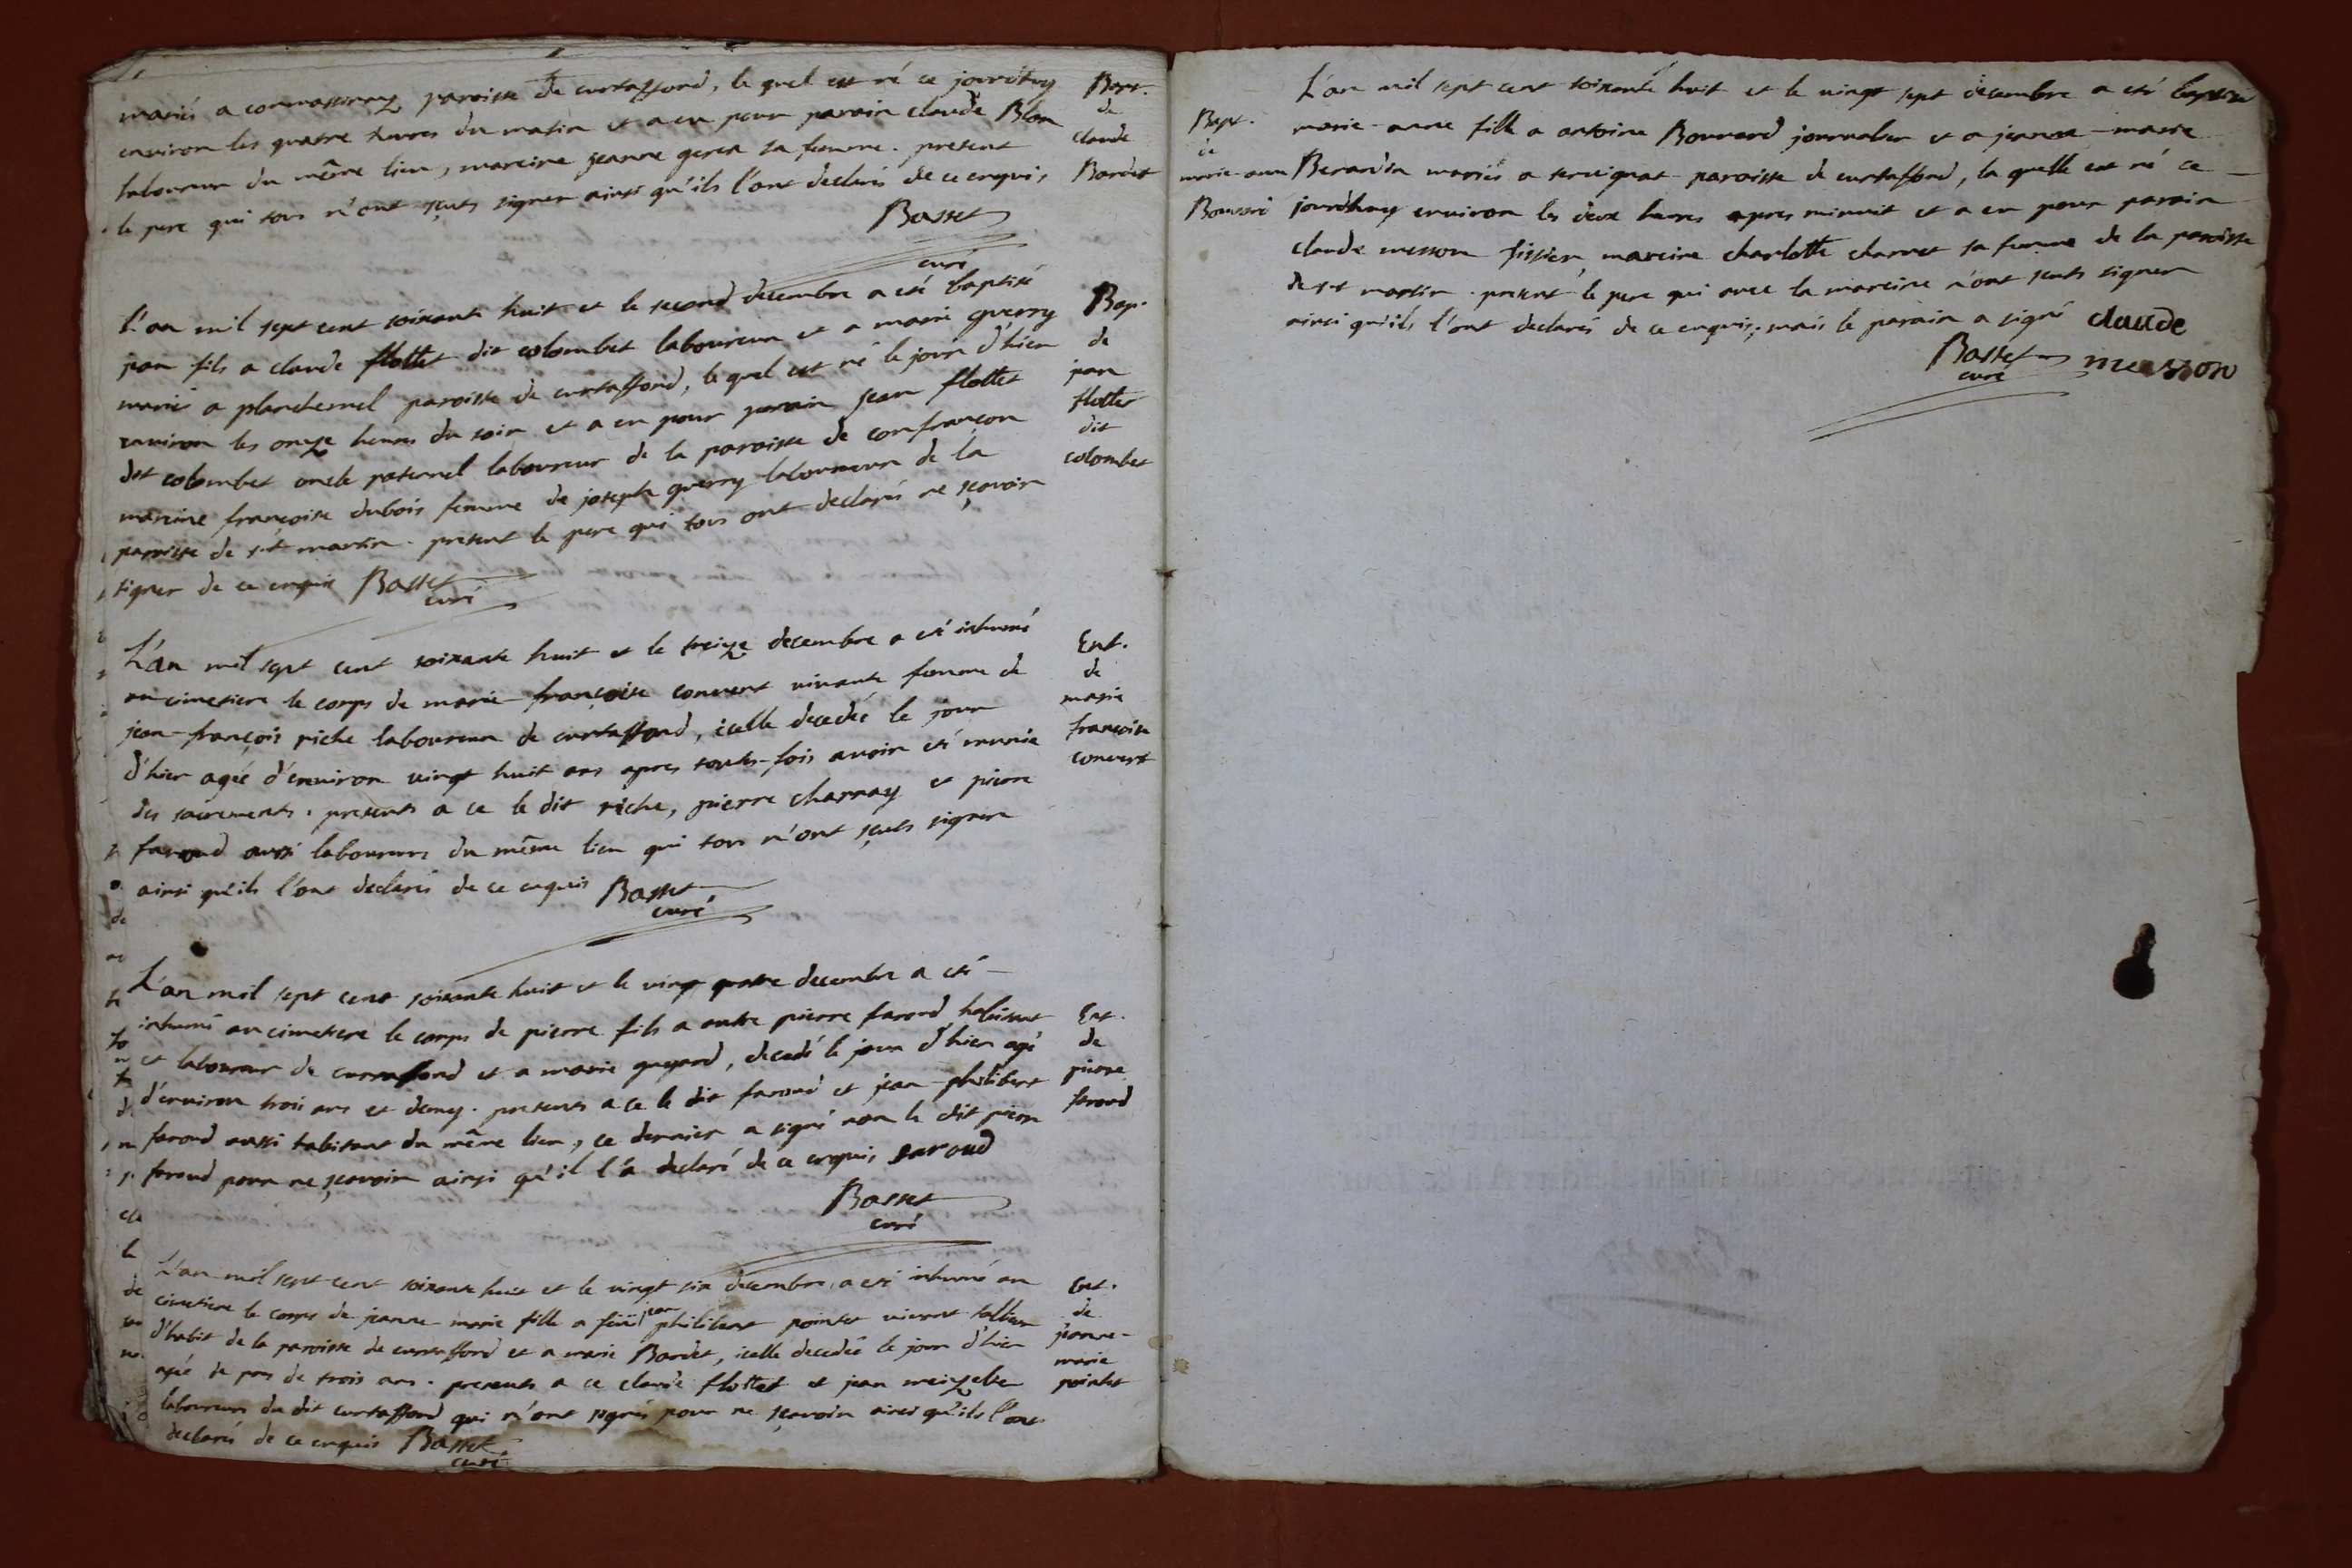 mariés a conmassirny paroisse de curtaffond, le quel est né ce jourdhuy
environ les quatre heures du matin et a eu pour parain claude Blon
laboureur du même lieu, mareine jeanne geren sa femme. present
le pere qui tous n'ont sçuts signer ainsi qu'ils l'ont declarés de ce enquis
Basset
curé
Bapt.
de
claude
Bardet
l'an mil sept cent soixante huit et le second decembre a été baptisé
jean fils a claude flottet dit colombet laboureur et a marie guerry
marié a planchemel paroisse de curtaffond, le quel est né le jour d'hier
environ les onze heures du soir et a eu pour parain jean flottet
dit colombet oncle paternel laboureur de la paroisse de confrançon
mareine françoise dubois femme de joseph guerry laboureur de la
paroisse de st martin. present le pere qui tous ont declarés ne sçavoir
signer de ce enquis Basset
curé
Bap.
de
jean
flottet
dit
colombet
L'an mil sept cent soixante huit et le treize decembre a été inhumé
au cimetiere le corps de marie-françoise convert vivante femme de
jean-françois riche laboureur de curtaffond, icelle decedée le jour
d'hier agée d'environ vingt huit ans apres toutes-fois avoir été munie
des sacrements. presents a ce le dit riche, pierre charnay et pierre
faroud aussi laboureurs du même lieu qui tous n'ont sçuts signer
ainsi qu'ils l'ont declarés de ce enquis Basset
curé
Ent.
de
marie
françoise
convert
L'an mil sept cent soixante huit et le vingt quatre decembre a été
inhumé au cimetiere le corps de pierre fils a autre pierre faroud habitant
et laboureur de curtaffond et a marie guyard, decedé le jour d'hier agé
d'environ trois ans et demy. presents a ce le dit faroud et jean-philibert
faroud aussi habitant du même lieu, ce dernier a signé non le dit pierre
faroud pour ne sçavoir ainsi qu'il l'a declaré de ce enquis faroud
Basset
curé
Ent.
de
pierre
faroud
L'an mil sept cent soixante huit et le vingt six decembre a été inhumé au
cimetiere le corps de jeanne-marie fille a feüe jean philibert pointet vivant tallieur
d'habit de la paroisse de curtaffond et a marie Bardet, icelle decedée le jour d'hier
agée de pres de trois ans. presents a ce claude flottet et jean
laboureurs du dit curtaffond qui n'ont signés pour ne sçavoir ainsi qu'ils l'ont
declarés de ce enquis Basset
curé
Ent.
de
jeanne-
marie
pointet
L'an mil sept cent soixante huit et le vingt sept decembre a été baptisée
marie-anne fille a antoine Bouvard journalier et a jeanne-marie
Berardin mariés a servignat paroisse de curtaffond, la quelle est né ce
jourdhuy environ les deux heures apres minuit et a eu pour parain
claude messon tissier, mareine charlotte charvet sa femme de la paroisse
de st martin. present le pere qui avec la mareine n'ont sçuts signer
ainsi qu'ils l'ont declarés de ce enquis; mais le parain a signé claude
Basset messon
curé
Bapt.
de
marie-anne
Bouvard